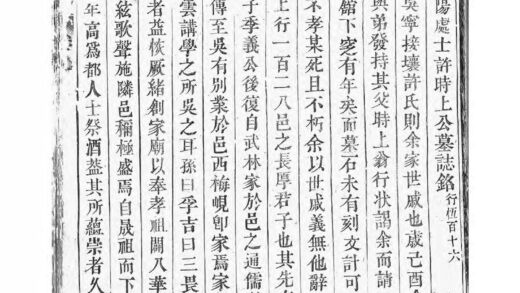 陽處士許時上公墓誌銘行恆百十六
吳寧接壤許氏則余家世戚也歲己酉余
與弟發持其父時上翁行狀謁余而請
館下窆有年矣而墓石未有刻文計可
不孝某死且不朽余以世戚義無他辭
上行一百二八邑之長厚君子也其先
子季義公後復自武林家於邑之通儒
傳至吳有別業於邑西梅峴卽家焉家
雲講學之所吳之耳孫曰孚吉曰三畏
者益恢厥緒創家廟以奉孝祖闢八華
絃歌聲施隣邑稱極盛焉自晟祖而下
年高爲都人士祭酒蓋其所蘊崇者久